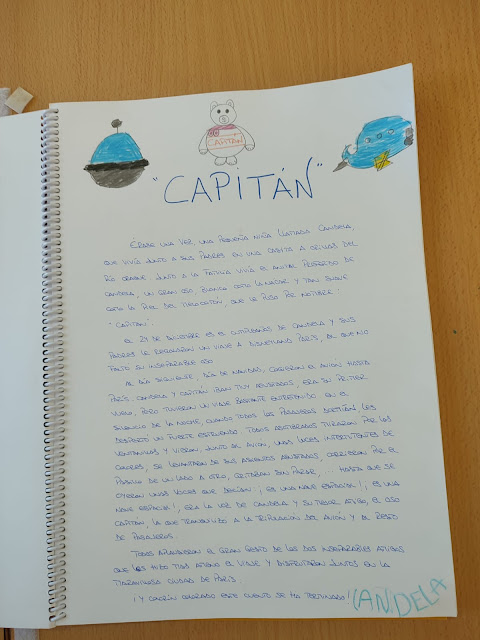 CAPITÁN
"CAPITÁN"
ÉRASE UNA VEZ, UNA PEQUEÑA NIÑA LLAMADA CANDELA,
QUE VIVÍA JUNTO A SUS PADRES EN UNA CASITA A ORILLAS DEL
RÍO ORAQUE. JUNTO A LA FAMILIA VIVÍA EL ANIMAL PREFERIDO DE
CANDELA, UN GRAN OSO, BLANCO COMO LA NACAR Y TAN SUAVE
COMO LA PIEL DEL MELOCOTÓN, QUE LE PUSO POR NOMBRE:
"CAPITÁN".
EL 24 DE DICIEMBRE ES EL CUMPLEAÑOS DE CANDELA Y SUS
PADRES LE REGALARON UN VIAJE A DISNEYLAND PARÍS, AL QUE NO
FALTÓ SU INSEPARABLE OSO.
AL DÍA SIGUIENTE, DÍA DE NAVIDAD, COGIERON EL AVIÓN HASTA
PARÍS. CANDELA Y CAPITÁN IBAN MUY ABURRIDOS, ERA SU PRIMER
VUELO, PERO TUVIERON UN VIAJE BASTANTE ENTRETENIDO. EN EL
SILENCIO DE LA NOCHE, CUANDO TODOS LOS PASAJEROS DORMÍAN, LES
DESPERTÓ UN FUERTE ESTRUENDO. TODOS ADORMILADOS MIRARON POR LAS
VENTANILLAS Y VIERON, JUNTO AL AVIÓN, UNAS LUCES INTERMITENTES DE
COLORES, SE LEVANTARON DE SUS ASIENTOS ASUSTADOS, CORRIERON POR EL
PASILLO DE UN LADO A OTRO, GRITABAN SIN PARAR, ... HASTA QUE SE
OYERON UNAS VOCES QUE DECÍAN: ¡ES UNA NAVE ESPACIAL!, ¡ES UNA
NAVE ESPACIAL!, ERA LA VOZ DE CANDELA Y SU MEJOR AMIGO, EL OSO
CAPITÁN, LA QUE TRANQUILIZÓ A LA TRIPULACIÓN DEL AVIÓN Y AL RESTO
DE PASAJEROS.
TODOS APLAUDIERON EL GRAN GESTO DE LOS DOS INSEPARABLES AMIGOS
QUE LES HIZO MÁS AMENO EL VIAJE Y DISFRUTARON JUNTOS EN LA
MARAVILLOSA CIUDAD DE PARÍS.
¡Y COLORÍN COLORADO ESTE CUENTO SE HA TERMINADO!
CANDELA